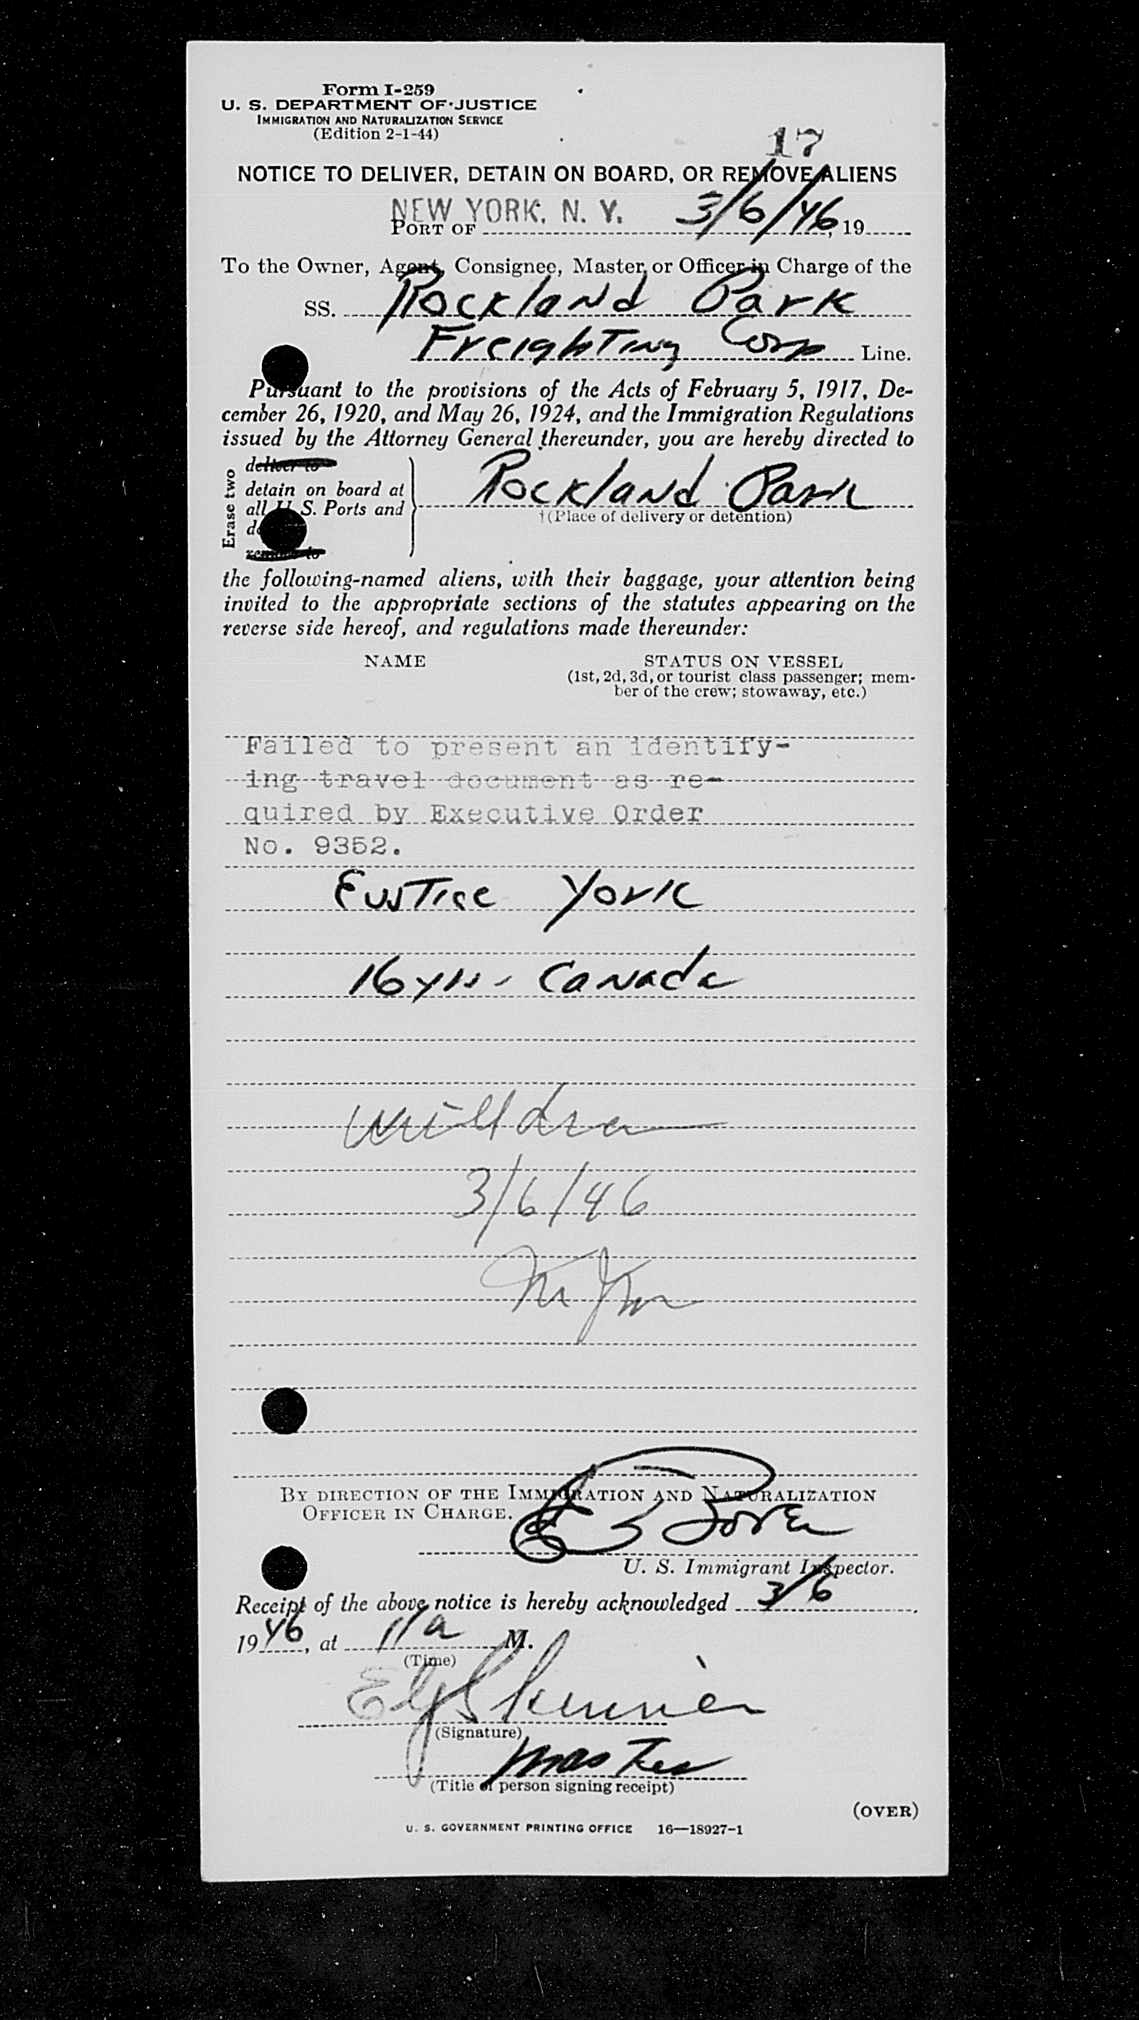 Form I-259
U. S. DEPARTMENT OF JUSTICE
IMMIGRATION AND NATURALIZATION SERVICE
(Edition 2-1-44)
17
NOTICE TO DELIVER, DETAIN ON BOARD, OR REMOVE ALIENS
NEW YORK, N. Y. 3/6/46
PORT OF , 19
To the Owner, Agent, Consignee, Master, or Officer in Charge of the
SS. Rockland Park
Freighting Corp Line.
Pursuant to the provisions of the Acts of February 5, 1917, De-
cember 26, 1920, and May 26, 1924, and the Immigration Regulations
issued by the Attorney General thereunder, you are hereby directed to
Erase two
deliver to
detain on board at
all U. S. Ports and
remove to
Rockland Park
†(Place of delivery or detention)
the following-named aliens, with their baggage, your attention being
invited to the appropriate sections of the statutes appearing on the
reverse side hereof, and regulations made thereunder:
NAME STATUS ON VESSEL
(1st, 2d, 3d, or tourist class passenger; mem-
ber of the crew; stowaway, etc.)
Failed to present an identify-
ing travel document as re-
quired by Executive Order
No. 9352.
Eustice York
16 yrs - Canada
3/6/46
BY DIRECTION OF THE IMMIGRATION AND NATURALIZATION
OFFICER IN CHARGE.
U. S. Immigrant Inspector.
Receipt of the above notice is hereby acknowledged 3/6
1946, at 11 a M.
(Time)
(Signature)
Master
(Title of person signing receipt)
(OVER)
U. S. GOVERNMENT PRINTING OFFICE 16—18927-1